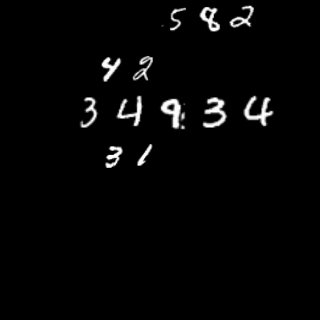 582
42
34934
31